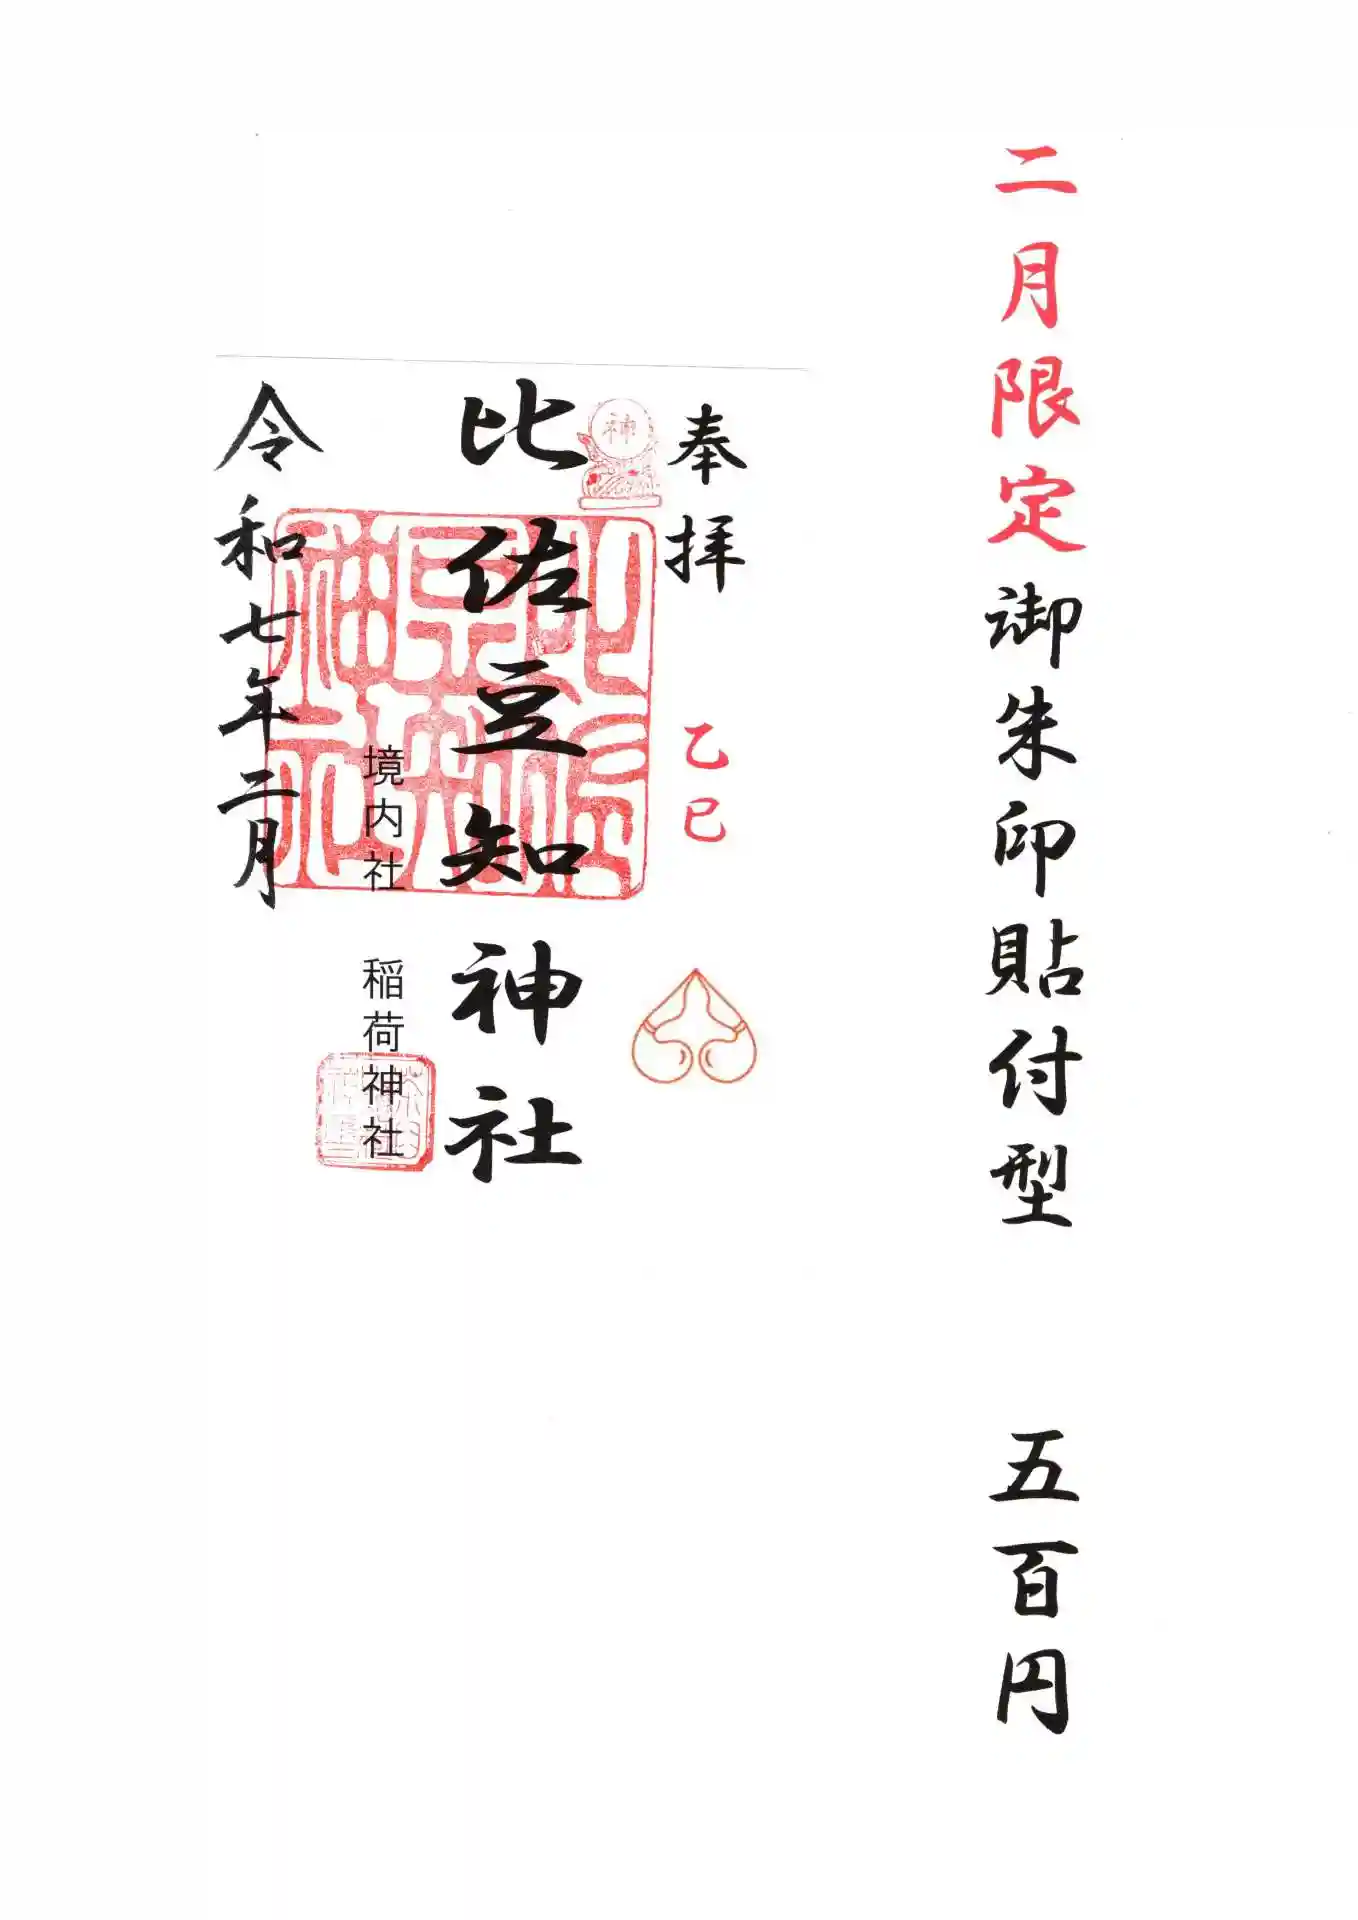 二月限定御朱印貼付型 五百円
奉拝
乙巳
神
比佐豆知神社
境内社 稲荷神社
令和七年二月